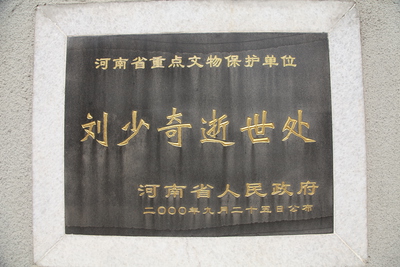 河南省重点文物保护单位
刘少奇逝世处
河南省人民政府
二000年九月二十五日公布